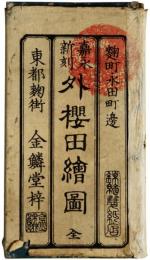 麹町永田町邊
嘉永新刻
外櫻田繪圖 全
東都麹街 金鱗堂梓